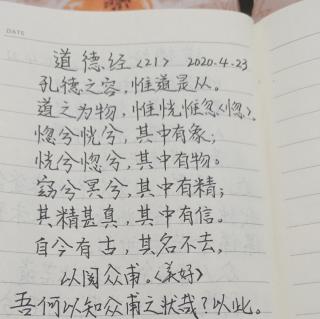 DATE
道德经<21> 2020.4.23
孔德之容，惟道是从。
道之为物，惟恍惟忽<惚>。
惚兮恍兮，其中有象；
恍兮惚兮，其中有物。
窈兮冥兮，其中有精；
其精甚真，其中有信。
自今有古，其名不去，
以阅众甫。<美好>
吾何以知众甫之状哉？以此。